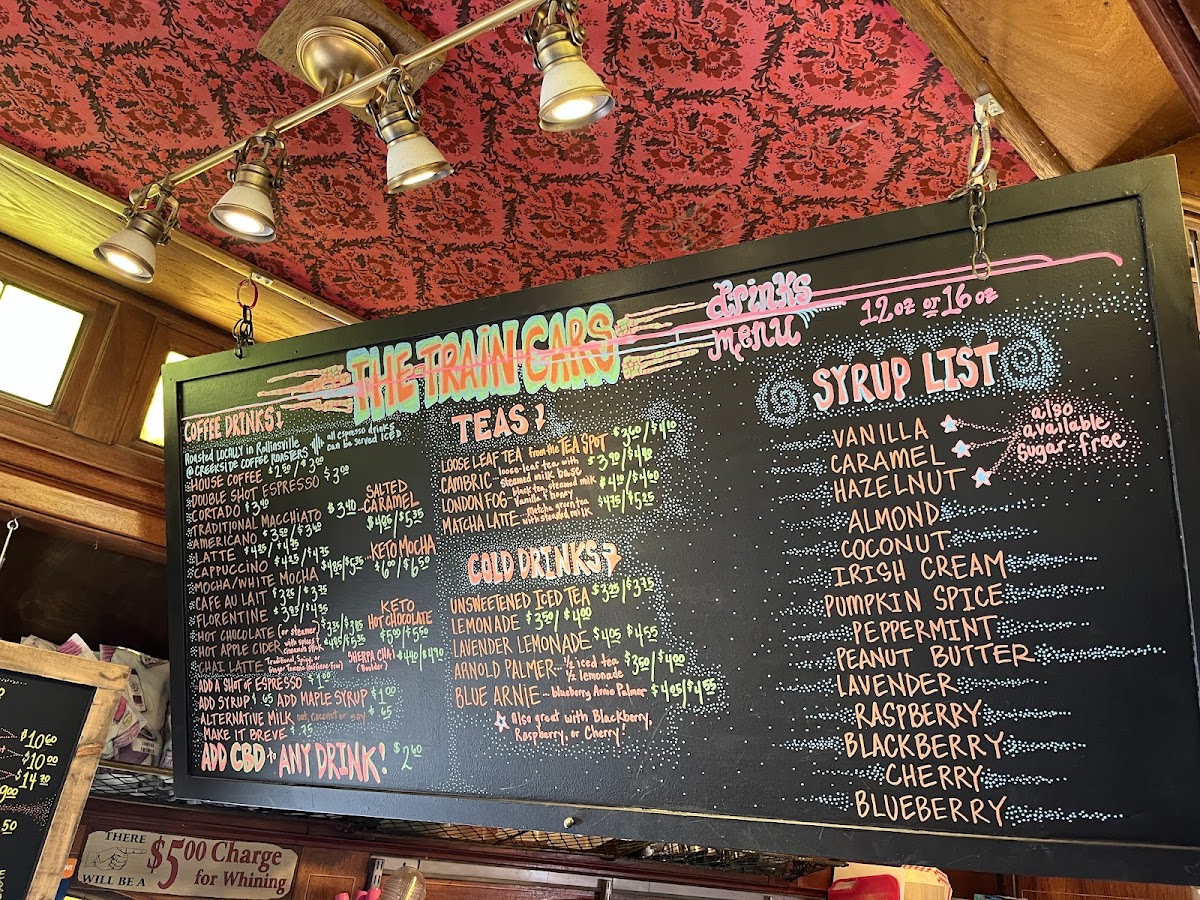 THE TRAIN CARS
drinks
menu
12 oz or 16 oz
COFFEE DRINKS!
Roasted LOCALLY in Rollinsville
@ CREEKSIDE COFFEE ROASTERS
all espresso drinks
can be served ICED
HOUSE COFFEE $2.50/$3.00
DOUBLE SHOT ESPRESSO $3.00
CORTADO $3.40
TRADITIONAL MACCHIATO $3.40
AMERICANO $3.50/$3.90
LATTE $4.25/$4.75
CAPPUCCINO $4.25/$4.75
MOCHA/WHITE MOCHA $4.85/$5.35
CAFE AU LAIT $3.25/$3.75
FLORENTINE $3.85/$4.35
HOT CHOCOLATE (or steamer) $3.35/$3.85
HOT APPLE CIDER with spices & cinnamon stick $4.85/$5.35
CHAI LATTE
SHERPA CHAI
(Boulder)
$4.40/$4.90
SALTED
CARAMEL
KETO MOCHA
$6.00/$6.50
KETO
HOT CHOCOLATE
$5.00/$5.50
ADD A SHOT OF ESPRESSO $1.00
ADD SYRUP $.65 ADD MAPLE SYRUP $1.00
ALTERNATIVE MILK oat, coconut or soy $.65
MAKE IT BREVE $.75
ADD CBD to ANY DRINK! $2.60
TEAS
LOOSE LEAF TEA from the TEA SPOT $3.60/$4.10
CAMBRIC - loose-leaf tea with steamed milk base $3.90/$4.40
LONDON FOG - black tea, steamed milk vanilla & honey
MATCHA LATTE - matcha green tea with steamed milk $4.75/$5.25
COLD DRINKS
UNSWEETENED ICED TEA $3.25/$3.75
LEMONADE $3.50/$4.00
LAVENDER LEMONADE $4.05 $4.55
ARNOLD PALMER - ½ iced tea ½ lemonade $3.50/$4.00
BLUE ARNIE - blueberry Arnie Palmer $4.05/$4.55
Also great with Blackberry,
Raspberry, or Cherry!
SYRUP LIST
VANILLA
CARAMEL
HAZELNUT
also
available
sugar-free
ALMOND
COCONUT
IRISH CREAM
PUMPKIN SPICE
PEPPERMINT
PEANUT BUTTER
LAVENDER
RASPBERRY
BLACKBERRY
CHERRY
BLUEBERRY
$10.60
$10.00
$14.20
9.00
.50
THERE
WILL BE A
$5.00 Charge
for Whining